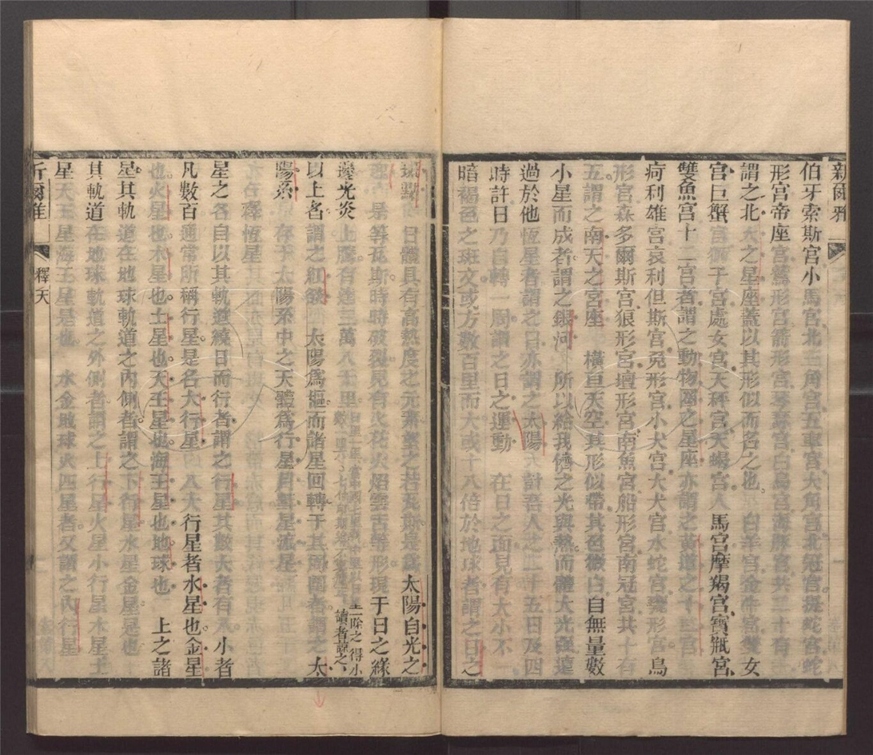 新爾雅
伯牙索斯宮小馬宮北三角宮五車宮大角宮北冠宮 蛇宮蛇
形宮帝座宮鷲形宮箭形宮琴 宮白鳥宮海豚宮共二十有
謂之北天之星座蓋以其形似而名之也 白羊宮金牛宮雙女
宮巨蟹宮獅子宮處女宮天秤宮天蝎宮人馬宮摩羯宮寶瓶宮
雙魚宮十二宮者謂之動物圈之星座亦謂之黃道之十二宮
疴利雄宮哀利但斯宮兔形宮小犬宮大犬宮水蛇宮 形宮烏
形宮森多爾斯宮狼形宮壇形宮南魚宮船形宮南冠宮共十有
五謂之南天之宮座 橫亘天空其形似帶其色微白自無量數
小星而成者謂之銀河 所以給我儕之光與熱而體大光強遠
過於他恆星者謂之日亦謂之太陽 計吾人之二十五日及四
時許日乃自轉一周謂之日之運動 在日之面見有大小不一
暗褐色之斑文或方數百里而大或十八倍於地球者謂之日之
斑點 日體具有高熱度之元素氣之 太陽自光之
 是等 斯時時破裂見有火花火焰雲 等形現于日之緣
邊光炎上騰有達三萬八千里 一除之得小 讀者諒之
以上者謂之紅燄 太陽爲樞而諸星回轉于其周圍者謂之太
陽系 存于太陽系中之天體爲行星 星流星
 釋恆星
星之各自以其軌道繞日而行者謂之行星其數大者有八小者
凡數百通常所稱行星是名大行星 八大行星者水星也金星
也火星也木星也土星也天王星也海王星也地球也 上之諸
星其軌道在地球軌道之內側者謂之下行星水星金星是也
其軌道在地球軌道之外側者謂之上行星火星小行星木星土
星天王星海王星是也 水金地球火四星者又謂之內行星
新爾雅 釋天